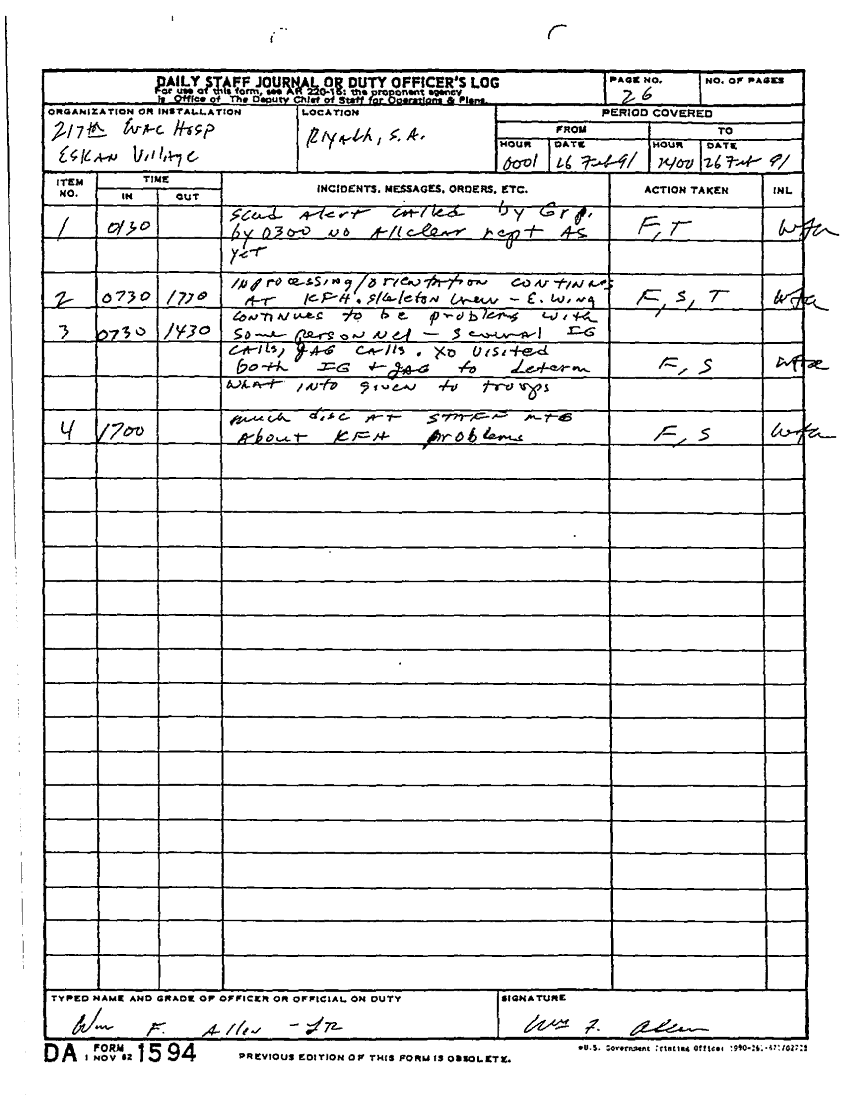 DAILY STAFF JOURNAL OR DUTY OFFICER'S LOG
For use of this form, see AR 220-15; the proponent agency
is Office of The Deputy Chief of Staff for Operations & Plans.
PAGE NO.
26
NO. OF PAGES
ORGANIZATION OR INSTALLATION
217th Evac Hosp
Eskan Village
LOCATION
Riyadh, S.A.
PERIOD COVERED
FROM
TO
HOUR
DATE
HOUR
DATE
0001
26 Feb 91
2400
26 Feb 91
ITEM NO.
TIME
IN
OUT
INCIDENTS, MESSAGES, ORDERS, ETC.
ACTION TAKEN
INL
1 0130 Scud Alert called by Grp.
by 0300 no All clear rept As
yet
F, T
wfa
2 0730 1730 Inprocessing/orientation continues
AT KFH. Skeleton crew - E. Wing
F, S, T
wfa
3 0730 1430 continues to be problems with
some personnel - several IG
calls, JAG calls. XO visited
both IG + JAG to determ
what info given to troops
F, S
wfa
4 1700 much disc AT STAFF mtg
About KFH problems
F, S
wfa
TYPED NAME AND GRADE OF OFFICER OR OFFICIAL ON DUTY
Wm F. Allen
SIGNATURE
Wm F. Allen
DA FORM 1 NOV 62 1594
PREVIOUS EDITION OF THIS FORM IS OBSOLETE.
U.S. Government Printing Office: